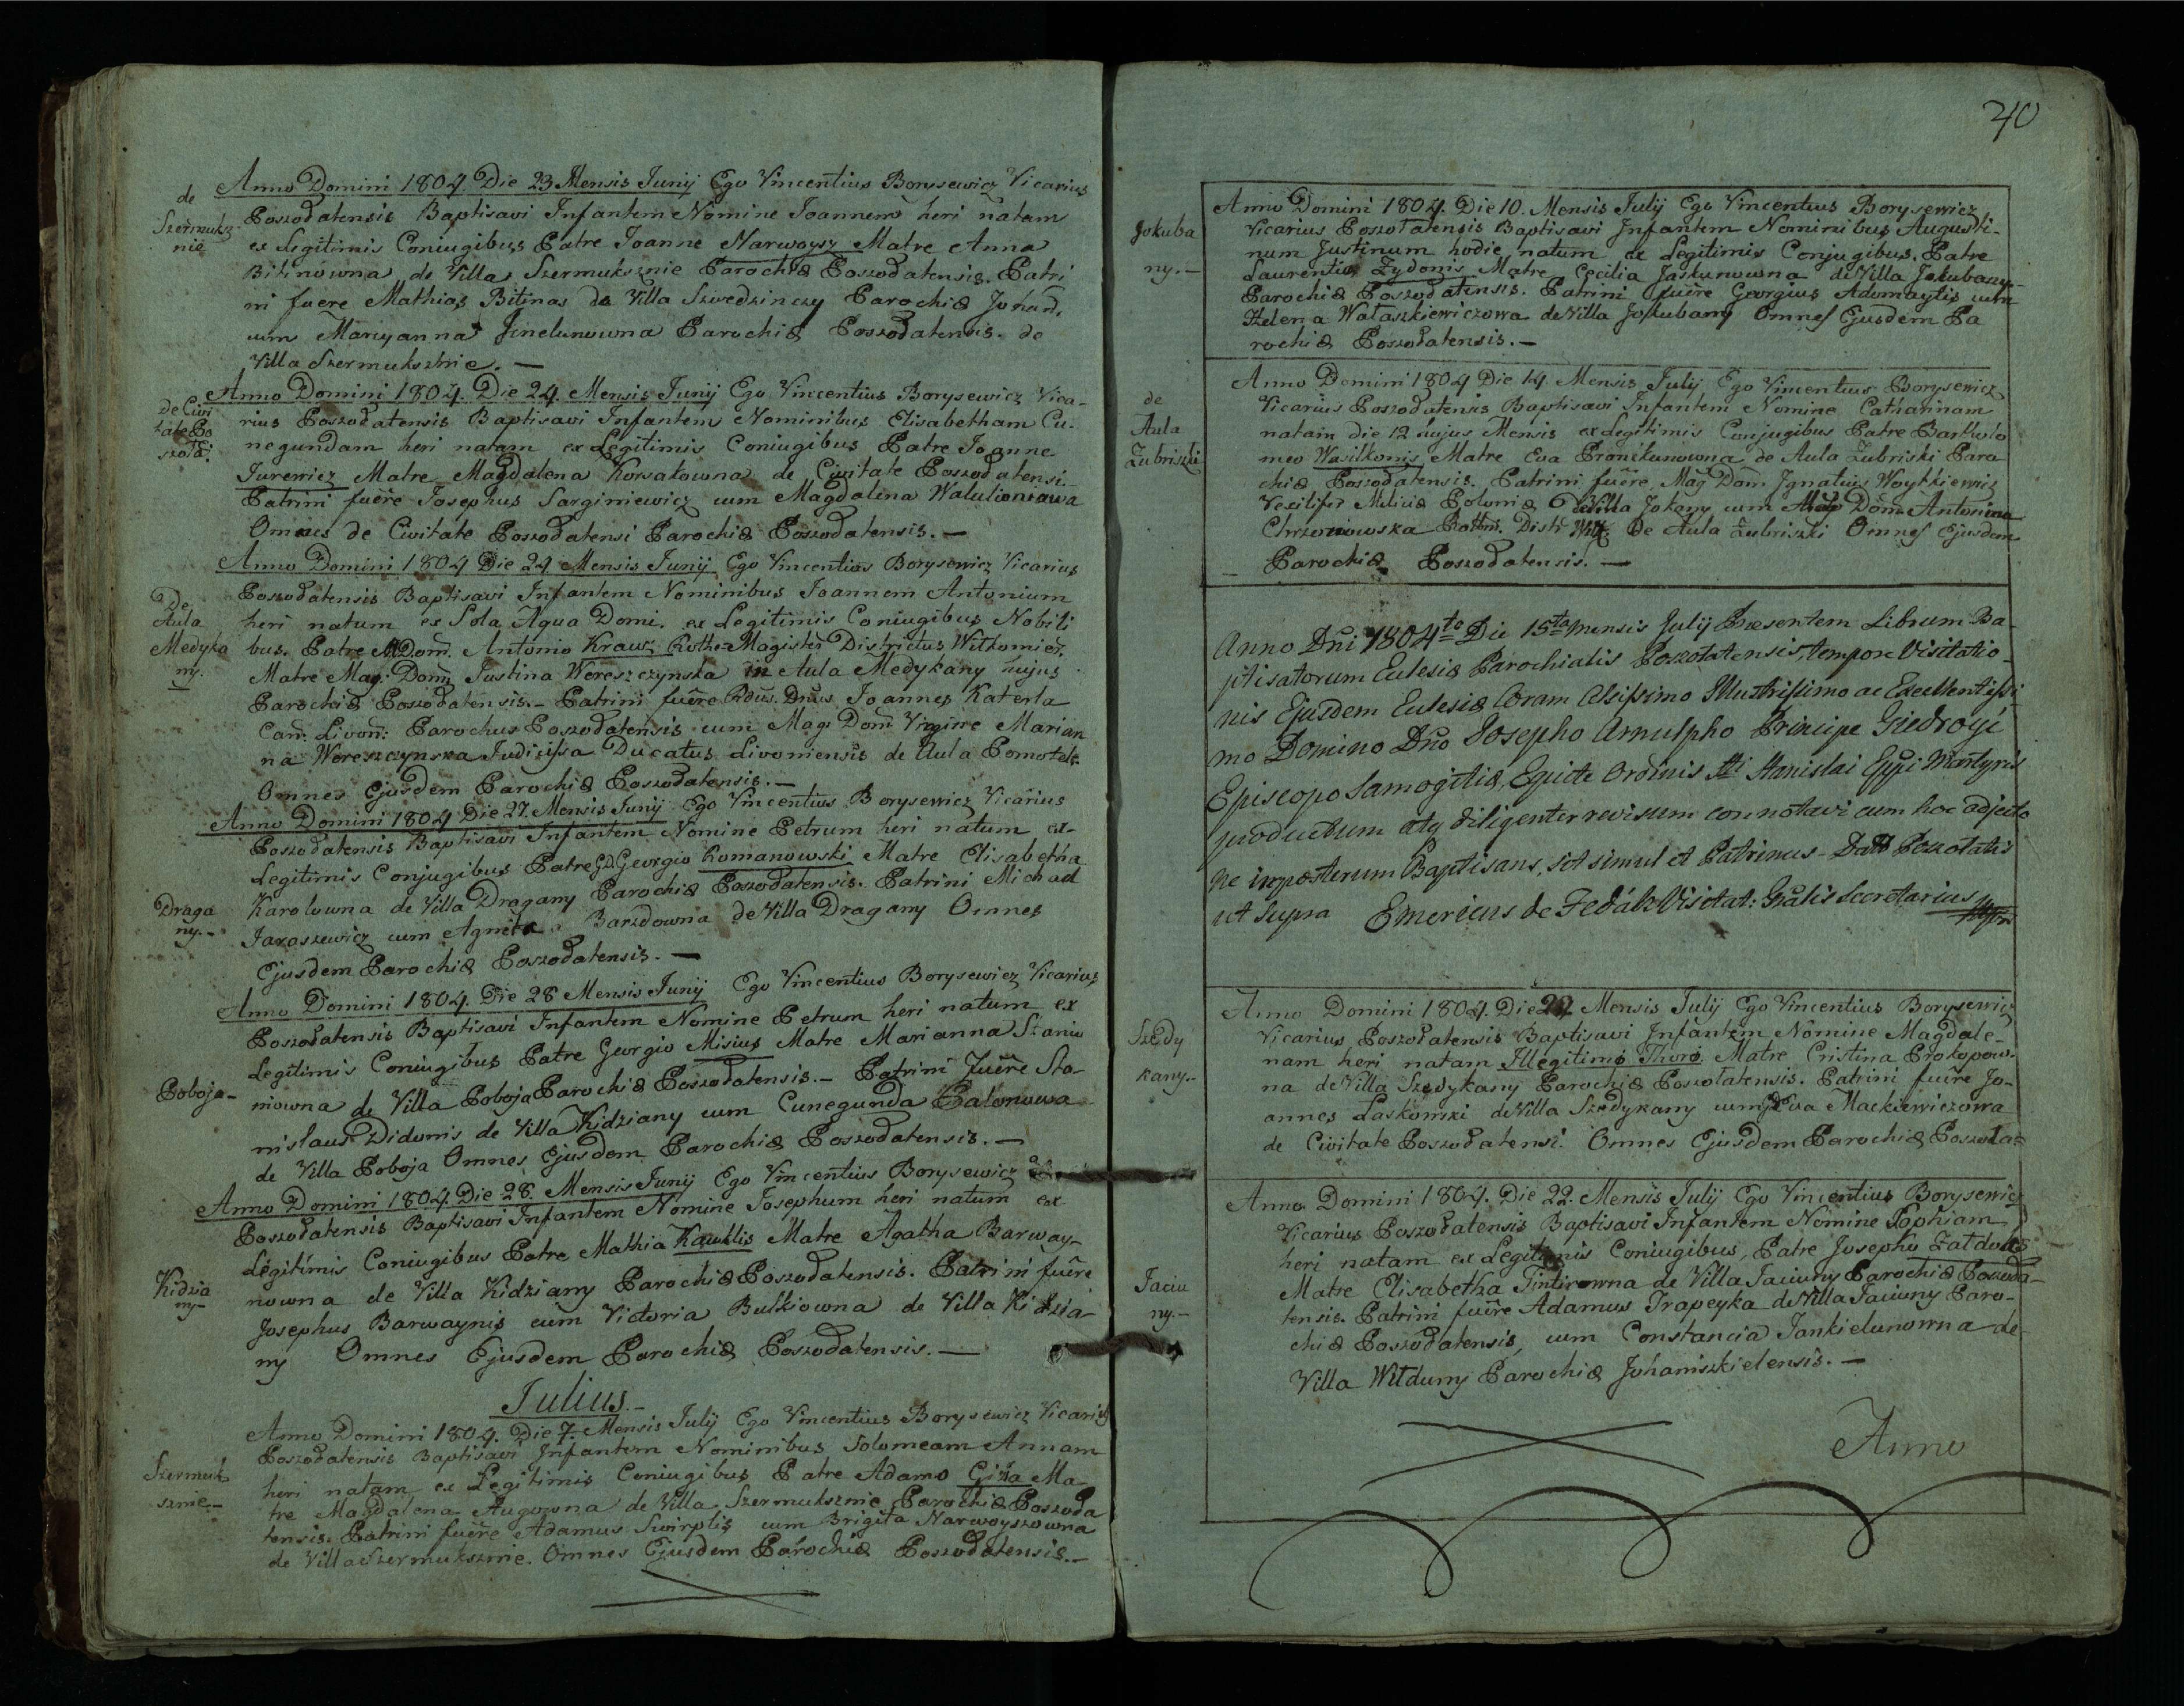 de
Szermuksz-
nie
Anno Domini 1804. Die 23 Mensis Junij Ego Vincentius Borysewicz Vicarius
Poszołatensis Baptisavi Infantem Nomine Joannem heri natam
ex Legitimis Coniugibus Patre Joanne Narwoysz Matre Anna
Bitinowna de Villa Szermuksznie Parochiæ Poszołatensis. Patri
ni fuere Mathias Bitinas de Villa Szwedzinczy Parochiæ Johan.
cum Maryanna Jenelunowna Parochiæ Poszołatensis. de
Villa Szermuksznie. —
De Civi
tate Po
szołat.
Anno Domini 1804. Die 24. Mensis Junij Ego Vincentius Borysewicz Vica-
rius Poszołatensis Baptisavi Infantem Nominibus Elisabetham Cu-
negundam heri natam ex Legitimis Coniugibus Patre Joanne
Jurewicz Matre Magdalena Korsakowna de Civitate Poszołatensi.
Patrini fuere Josephus Sarginiewicz cum Magdalena Walulionzawa
Omnes de Civitate Poszołatensi Parochiæ Poszołatensis. —
De
Aula
Medyka
ny.
Anno Domini 1804 Die 24 Mensis Junij Ego Vincentius Borysewicz Vicarius
Poszołatensis Baptisavi Infantem Nominibus Joannem Antonium
heri natum ex Sola Aqua Domi. ex Legitimis Coniugibus Nobili
bus. Patre M Dom. Antonio Kraws. Rothe-Magister Districtus Wiłkomier.
Matre Mag: Dom Justina Wereszczynska in Aula Medykany hujus
Parochiæ Poszołatensis. - Patrini fuere Rdus. Dnus Joannes Katerla
Can: Livon: Parochus Poszołatensis cum Mag: Dom Virgine Marian
na Wereszczynska Judicissa Ducatus Livoniensis de Aula Pomotele.
Omnes Ejusdem Parochiæ Poszołatensis. —
Draga
ny.-
Anno Domini 1804 Die 27. Mensis Junij Ego Vincentius Borysewicz Vicarius
Poszołatensis Baptisavi Infantem Nomine Petrum heri natum ex-
Legitimis Conjugibus Patre GD Georgio Romanowski Matre Elisabetha
Karolowna de Villa Dragany Parochiæ Poszołatensis. Patrini Michael
Jaroszewicz cum Agneta Barzdowna de Villa Dragany Omnes
Ejusdem Parochiæ Poszołatensis. —
Poboja-
Anno Domini 1804. Die 28 Mensis Junij Ego Vincentius Borysewicz Vicarius
Poszołatensis Baptisavi Infantem Nomine Petrum heri natum ex
Legitimis Coniugibus Patre Georgio Misius Matre Marianna Staniu
niowna de Villa Poboja Parochiæ Poszołatensis. - Patrini fuere Sta-
nisłaus Didonis de Villa Kidziany cum Cunegunda Palonowa
de Villa Poboja Omnes Ejusdem Parochiæ Poszołatensis. —
Kidzia
ny-
Anno Domini 1804. Die 28. Mensis Junij Ego Vincentius Borysewicz
Poszołatensis Baptisavi Infantem Nomine Josephum heri natum ex
Legitimis Coniugibus Patre Mathia Kawklis Matre Agatha Barway-
nowna de Villa Kidziany Parochiæ Poszołatensis. Patrini fuere
Josephus Barwaynis cum Victoria Bulkiowna de Villa Kidzia-
ny Omnes Ejusdem Parochiæ Poszołatensis. —
Julius.-
Szermuk
sznie-
Anno Domini 1804. Die 7. Mensis July Ego Vincentius Borysewicz Vicarius
Poszołatensis Baptisavi Infantem Nominibus Solomeam Annam
heri natam ex Legitimis Coniugibus Patre Adamo Giża Ma-
tre Magdalena Augowna de Villa Szermuksznie Parochiæ Poszoła
tensis. Patrini fuere Adamus Swirplis cum Brigita Narwoyszowna
de Villa Szermuksznie. Omnes Ejusdem Parochiæ Poszołatensis.-
40
Jokuba
ny.-
Anno Domini 1804. Die 10. Mensis July Ego Vincentius Borysewicz
Vicarius Poszołatensis Baptisavi Infantem Nominibus Augusti-
num Justinum hodie natum ex Legitimis Conjugibus. Patre
Laurentio Zydonis Matre Cecilia Jaskunowna de Villa Jokubany-
Parochiæ Poszołatensis. Patrini fuere Georgius Adomaytis cum
Helena Wałaszkiewiczowa de Villa Jokubany Omnes Ejusdem Pa
rochiæ Poszołatensis. —
de
Aula
Żubriszki
Anno Domini 1804 Die 14. Mensis July Ego Vincentius Borysewicz
Vicarius Poszołatensis Baptisavi Infantem Nomine Catharinam
natam die 12 hujus Mensis ex Legitimis Conjugibus Patre Bartholo
meo Wasilkonis Matre Eva Pronckunowna de Aula Żubriski Paro
chiæ Poszołatensis. Patrini fuere Mag Dom. Ignatius Woytkiewicz
Vexilifer Miliciæ Poloniæ de Villa Jokany cum Mag Dom Antonina
Chrzonowska Rothm. Distr. Wiłk. De Aula Żubriszki Omnes Ejusdem
Parochiæ Poszołatensis. —
Anno Dni 1804to Die 15ta mensis Julij Præsentem Librum Ba-
ptisatorum Eclesiæ Parochialis Poszołatensis, tempore Visitatio-
nis Ejusdem Eclesiæ Coram Celsissimo Illustrissimo ac Excellentissi
mo Domino Dno Josepho Arnulpho Principe Giedroyć
Episcopo Samogitiæ, Equite Ordinis Sti Stanislai Eppi Martyris
productum atq diligenter revisum connotavi cum hoc adjecto
ne imposterum Baptisans, sit simul et Patrinus - Datt Poszołatis
ut Supra Emericus de Fedák Visitat: Gnâlis Secretarius mppr
Szedy
kany.-
Anno Domini 1804. Die 22 Mensis July Ego Vincentius Borysewicz
Vicarius Poszołatensis Baptisavi Infantem Nomine Magdale-
nam heri natam Illegitimo Thoro Matre Cristina Prokopow-
na de Villa Szedykany Parochiæ Poszołatensis. Patrini fuere Jo-
annes Laskowski de Villa Szedykany cum Eva Mackiewiczowa
de Civitate Poszołatensi. Omnes Ejusdem Parochiæ Poszoła=
Jaciu
ny.-
Anno Domini 1804. Die 22. Mensis July Ego Vincentius Borysewicz
Vicarius Poszołatensis Baptisavi Infantem Nomine Sophiam
heri natam ex Legitimis Coniugibus, Patre Josepho Załdoks
Matre Elisabetha Tintirowna de Villa Jaciuny Parochiæ Poszoła-
tensis. Patrini fuere Adamus Trapeyka de Villa Jaciuny Paro-
chiæ Poszołatensis, cum Constancia Jankielunowna de-
Villa Wiłduny Parochiæ Johaniszkielensis. —
Anno